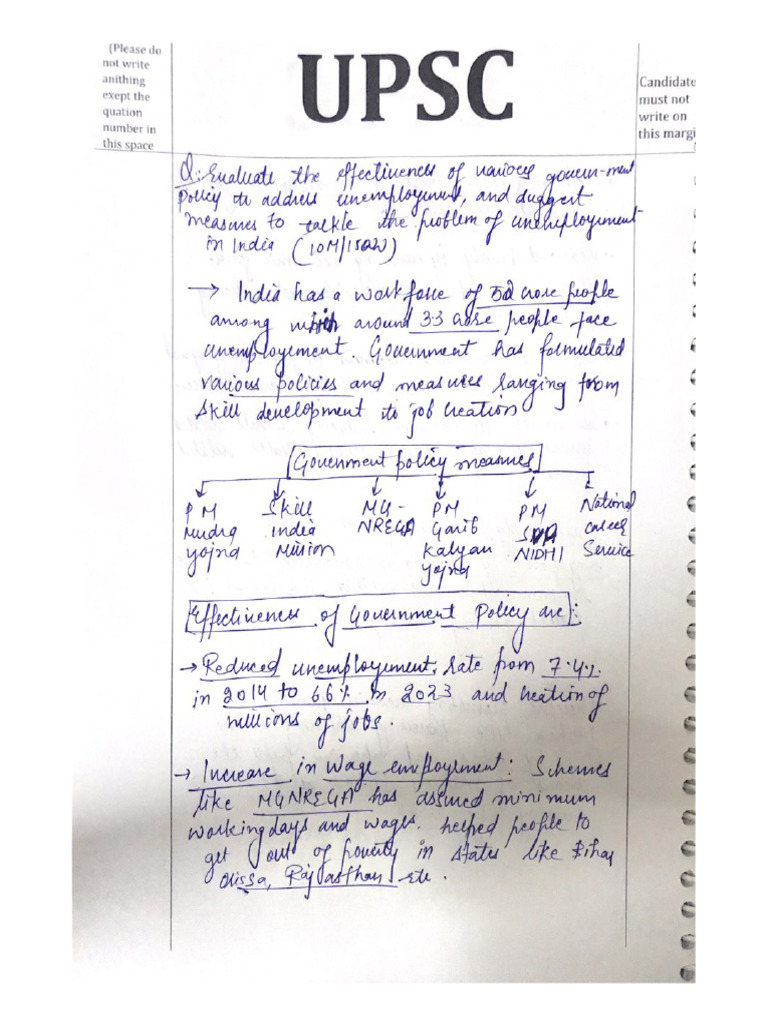 (Please do
not write
anithing
exept the
quation
number in
this space
UPSC
Candidate
must not
write on
this margi
Q: Evaluate the effectiveness of various govern-ment
policy to address unemployement, and suggest
measures to tackle the problem of unemployement
in India (10M/150W)
→ India has a workforce of 52 crore people
among which around 3.3 crore people face
unemployement. Government has formulated
various policies and measures ranging from
skill development to job creation
Government policy measures
PM
Mudra
Yojna
Skill
India
Mission
MG-
NREGA
PM
Garib
Kalyan
Yojna
PM
SVA
NIDHI
National
career
Service
Effectiveness of Government Policy are:
→ Reduced unemployement; rate from 7.4%
in 2014 to 6.6% in 2023 and creation of
millions of jobs.
→ Increase in wage employement: Schemes
like MGNREGA has assured minimum
working days and wages. helped people to
get out of poverty in states like Bihar
Orissa, Rajasthan etc.